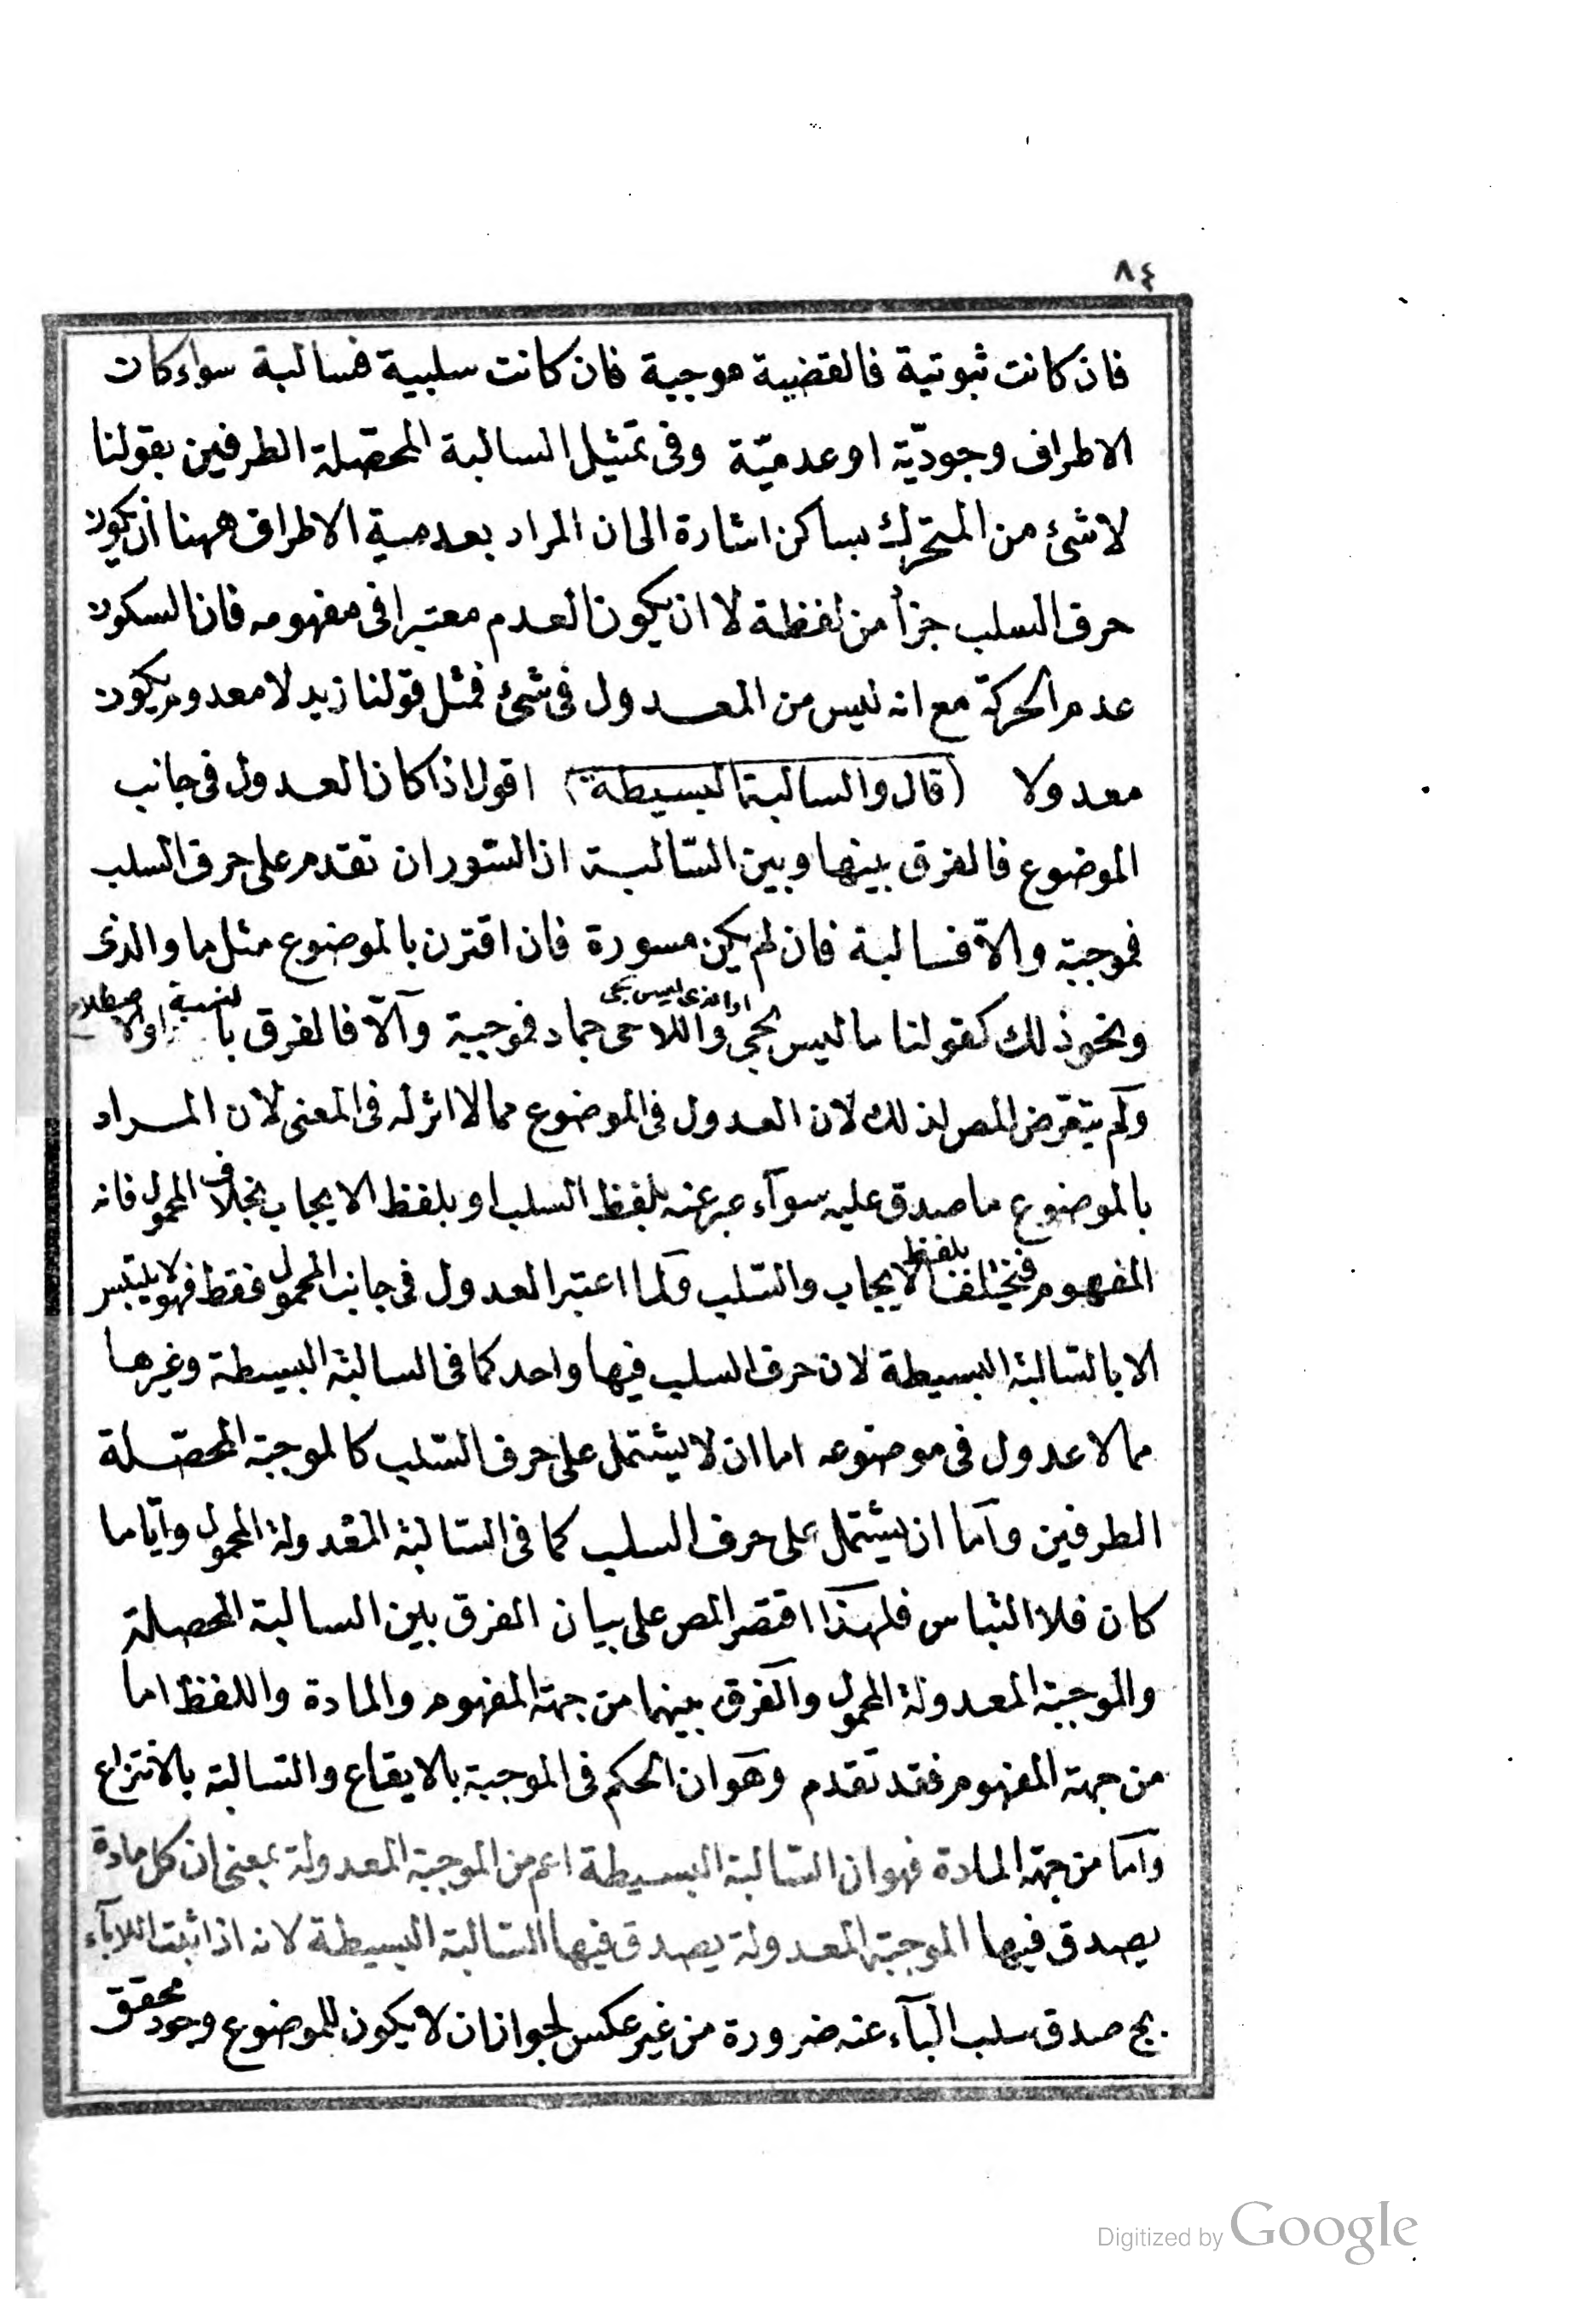 ٨٤
فان كانت ثبوتية فالقضية موجبة فان كانت سلبية فسالبة سواء كانت
الاطراف وجوديّة او عدميّة وفى تمثيل السالبة المحصّلة الطرفين بقولنا
لا شئ من المتحرك بساكن اشارة الى ان المراد بعدمية الاطراف ههنا ان يكون
حرف السلب جزأ من لفظة لا ان يكون العدم معتبرا فى مفهومه فان السكون
عدم الحركة مع انه ليس من المعدول فى شئ فمثل قولنا زيد لا معدوم يكون
معدولا (قال والسالبة البسيطة) اقول اذا كان العدول فى جانب
الموضوع فالفرق بينها وبين السّالبة ان السّور ان تقدم على حرف السلب
فموجبة والاّ فسالبة فان لم يكن مسورة فان اقترن بالموضوع مثل ما والذى
ونحو ذلك كقولنا ما ليس بحى او الذى ليس بحى واللا حى جماد فموجبة وآلاّ فالفرق بالنسبة اولا اصطلاح
ولم يتعرض المص لذلك لان العدول فى الموضوع مما لا اثر له فى المعنى لان المراد
بالموضوع ما صدق عليه سوآء عبر عنه بلفظ السلب او بلفظ الايجاب بخلاف المحمول فانه
المفهوم فيختلف بلفظ الايجاب والسّلب ولما اعتبر العدول فى جانب المحمول فقط فهو لا يلتبس
الا بالسّالبة البسيطة لان حرف السلب فيها واحد كما فى السالبة البسيطة وغيرها
مما لا عدول فى موضوعه اما ان لا يشتمل على حرف السّلب كالموجبة المحصّلة
الطرفين وآما ان يشتمل على حرف السلب كما فى السّالبة المعدولة المحمول وآيّا ما
كان فلا التباس فلهذا اقتصر المص على بيان الفرق بين السالبة المحصلة
والموجبة المعدولة المحمول والفرق بينهما من جهة المفهوم والمادة واللفظ اما
من جهة المفهوم فقد تقدم وهو ان الحكم فى الموجبة بالايقاع والسّالبة بالانتزاع
وآما من جهة المادة فهو ان السّالبة البسيطة اعم من الموجبة المعدولة بمعنى ان كل مادة
يصدق فيها الموجبة المعدولة يصدق فيها السّالبة البسيطة لانه اذا ثبت اللابآء
لج صدق سلب البآء عنه ضرورة من غير عكس لجواز ان لا يكون للموضوع وجود محقق
Digitized by Google